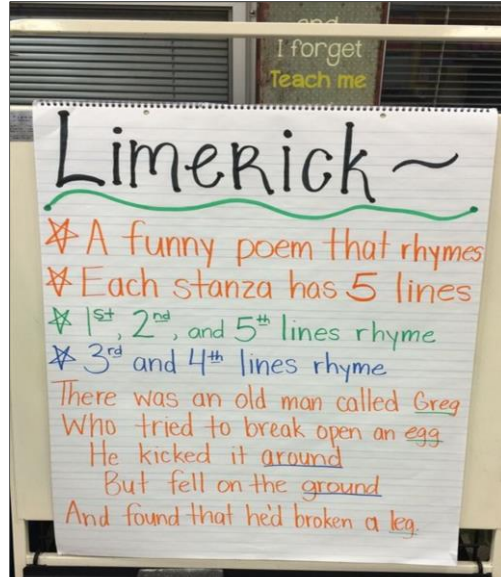 and
I forget
Teach me
LimeRick ~
☆ A funny poem that rhymes
☆ Each stanza has 5 lines
☆ 1st, 2nd, and 5th lines rhyme
☆ 3rd and 4th lines rhyme
There was an old man called Greg
Who tried to break open an egg
He kicked it around
But fell on the ground
And found that he'd broken a leg.